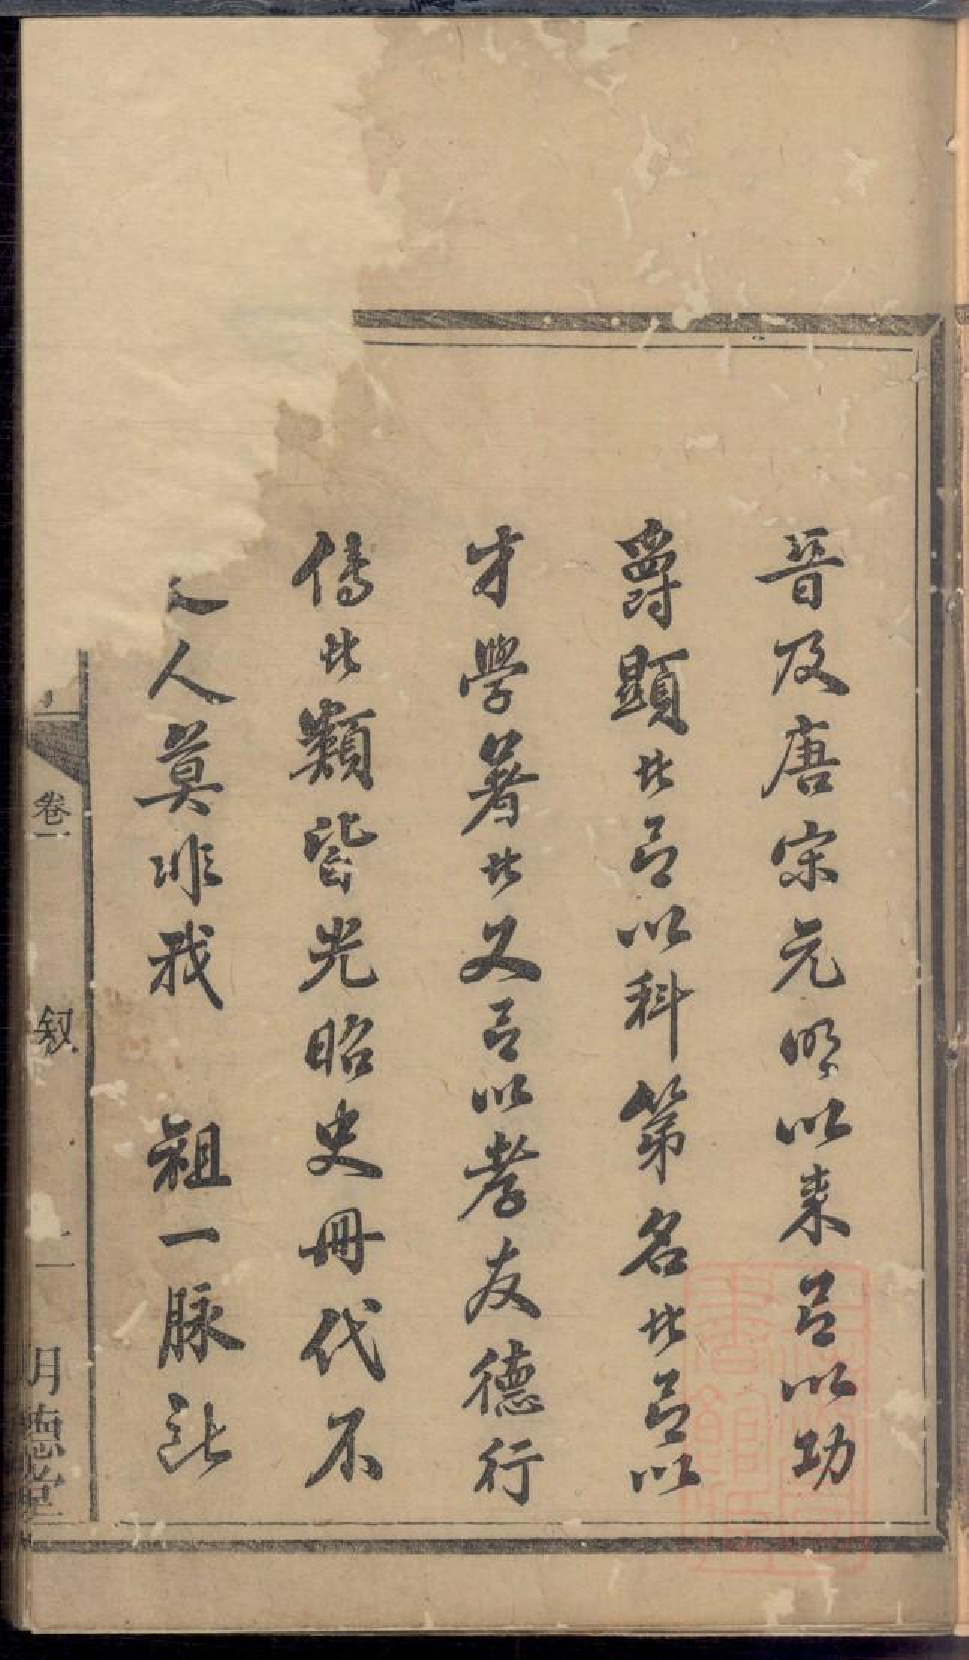 晉及唐宋元明以来㠯以功
爵顯者㠯以科第名者㠯以
才學著者又㠯以孝友德行
傳者類皆光昭史冊代不
乏人莫非我 祖一脉
卷一
叙
一
明德堂